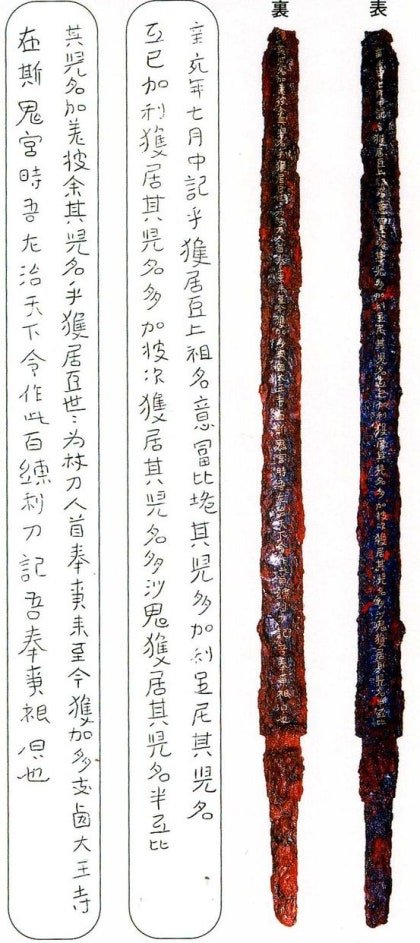 表
裏
辛亥年七月中記乎獲居臣上祖名意富比垝其児多加利足尼其児名
弖已加利獲居其児名多加披次獲居其児名多沙鬼獲居其児名半弖比
其児名加差披余其児名乎獲居臣世々為杖刀人首奉事来至今獲加多支鹵大王寺
在斯鬼宮時吾左治天下令作此百練利刀記吾奉事根原也